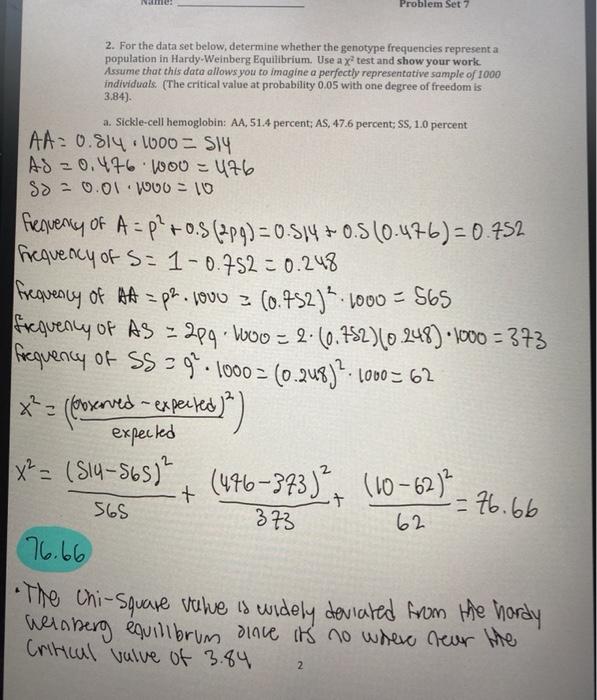 Name:
Problem Set 7
2. For the data set below, determine whether the genotype frequencies represent a
population in Hardy-Weinberg Equilibrium. Use a χ² test and show your work.
Assume that this data allows you to imagine a perfectly representative sample of 1000
individuals. (The critical value at probability 0.05 with one degree of freedom is
3.84).
a. Sickle-cell hemoglobin: AA, 51.4 percent; AS, 47.6 percent; SS, 1.0 percent
AA = 0.514 · 1000 = 514
AS = 0.476 · 1000 = 476
SS = 0.01 · 1000 = 10
frequency of A = p² + 0.5 (2pq) = 0.514 + 0.5 (0.476) = 0.752
frequency of S = 1 - 0.752 = 0.248
frequency of AA = p² · 1000 = (0.752)² · 1000 = 565
frequency of AS = 2pq · 1000 = 2 · (0.752)(0.248) · 1000 = 373
frequency of SS = q² · 1000 = (0.248)² · 1000 = 62
x² = ((observed - expected)²)
expected
x² = (514-565)² + (476-373)² + (10-62)² = 76.66
565 373 62
76.66
• The chi-square value is widely deviated from the hardy
weinberg equilibrum since its no where near the
critical value of 3.84
2